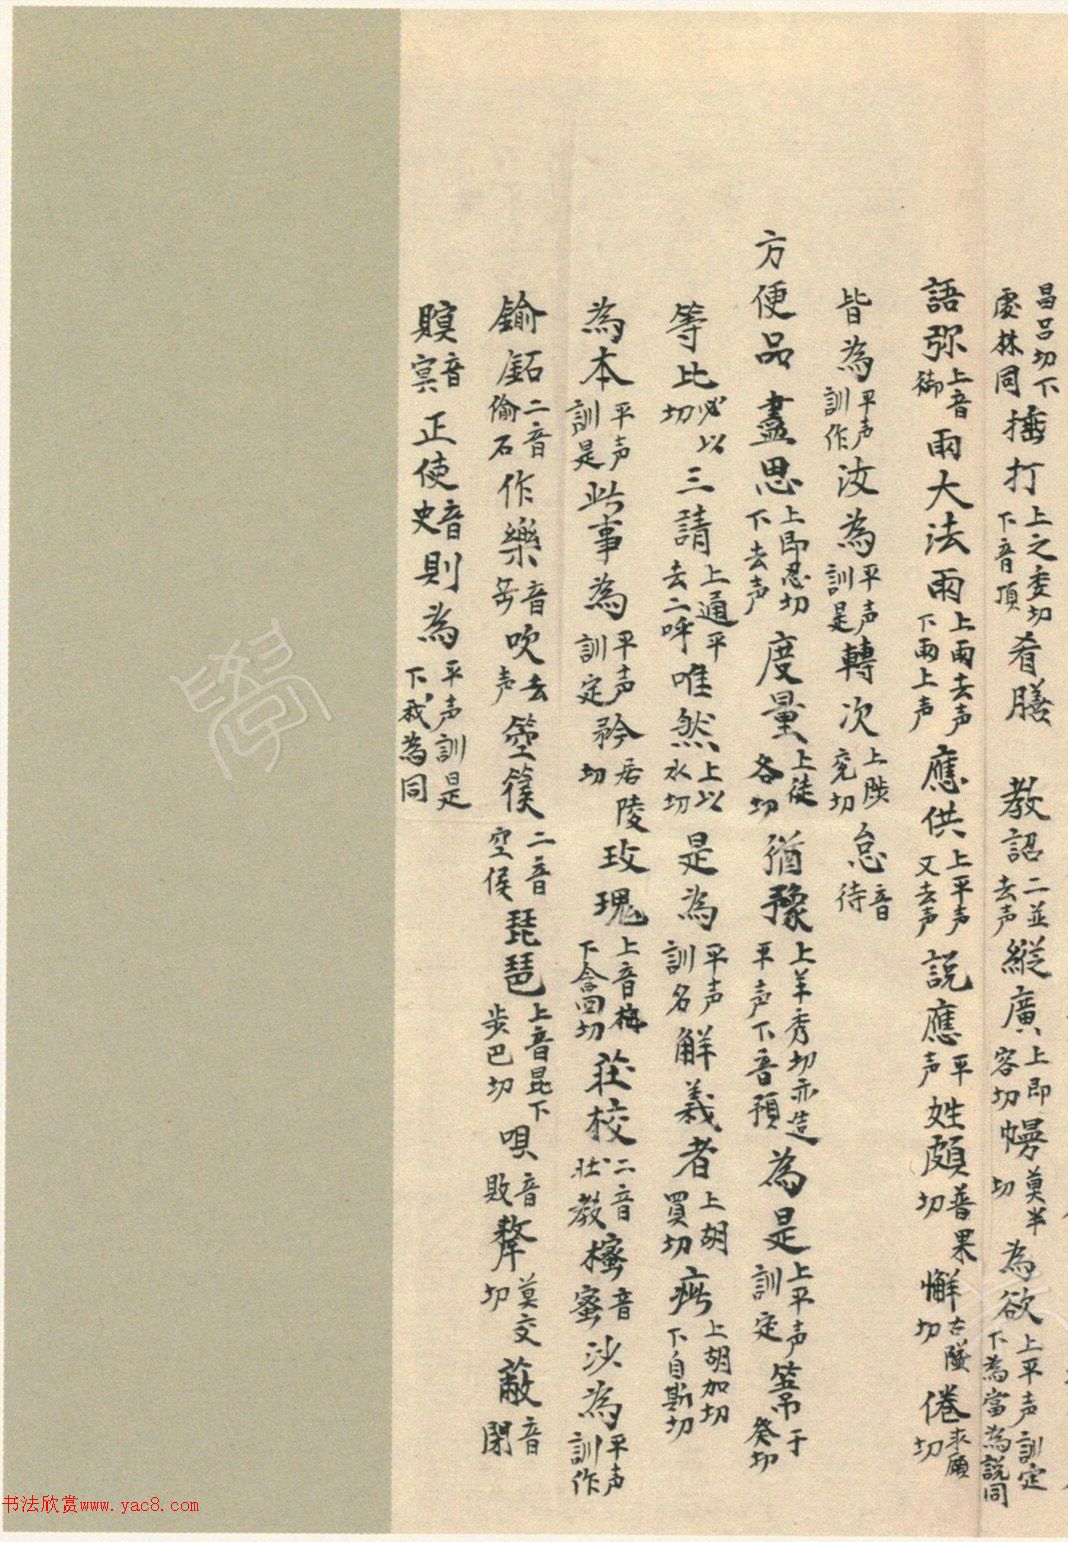 昌呂切下處林同捶打上之委切下音頂肴膳 教詔二並去声縱廣上即容切幔莫半切為欲上平声訓定下為當為説同
語弥上音御雨大法雨上雨去声下雨上声應供上平声又去声説應平声姓頗普果切懈古隘切倦求願切
皆為平声訓作汝為平声訓是轉次上陟兖切怠音待
方便品 盡思上即忍切下去声度量上徒各切猶豫上羊秀切亦造平声下音預為是上平声訓定等于癸切
等比必以切三請上通平去二呼唯然上以水切是為平声訓名解義者上胡買切疵上胡加切下自斯切
為本平声訓是此事為平声訓定矜居陵切玫瑰上音梅下含回切莊校二音壯教櫁音蜜沙為平声訓作
鍮鉐二音偷石作樂音岳吹去声箜篌二音空侯琵琶上音毘下步巴切唄音敗犛莫交切蔽音閉
瞑音冥正使音史則為平声訓是下我為同
書法欣賞www.yac8.com